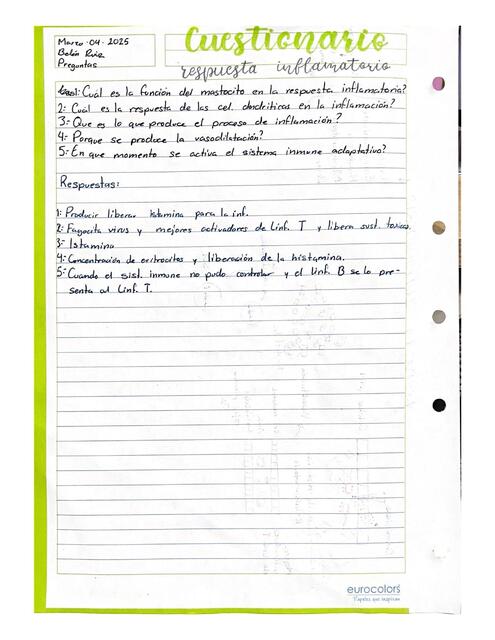 Marzo · 04 · 2025
Belén Ruiz
Preguntas
Cuestionario
respuesta inflamatorio
1: Cuál es la función del mastocito en la respuesta inflamatoria?
2: Cuál es la respuesta de las cel. dendríticas en la inflamación?
3: Que es lo que produce el proceso de inflamación?
4: Porque se produce la vasodilatación?
5: En que momento se activa el sistema inmune adaptativo?
Respuestas:
1: Producir liberar istamina para la inf.
2: Fagocita virus y mejores activadores de Linf. T y libera sust. toxicas.
3- Istamina
4: Concentración de eritrocitos y liberación de la histamina.
5: Cuando el sist. inmune no pudo controlar y el linf. B se lo pre-
senta al Linf. T.
eurocolors
Papeles que inspiran